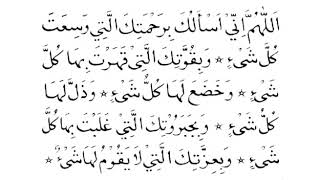 اَللّٰهُمَّ اِنِّيْ اَسْاَلُكَ بِرَحْمَتِكَ الَّتِيْ وَسِعَتْ
كُلَّ شَيْءٍ * وَبِقُوَّتِكَ الَّتِيْ قَهَرْتَ بِهَا كُلَّ
شَيْءٍ * وَخَضَعَ لَهَا كُلُّ شَيْءٍ * وَذَلَّ لَهَا
كُلُّ شَيْءٍ * وَبِجَبَرُوْتِكَ الَّتِيْ غَلَبْتَ بِهَا كُلَّ
شَيْءٍ * وَبِعِزَّتِكَ الَّتِيْ لَا يَقُوْمُ لَهَا شَيْءٌ *